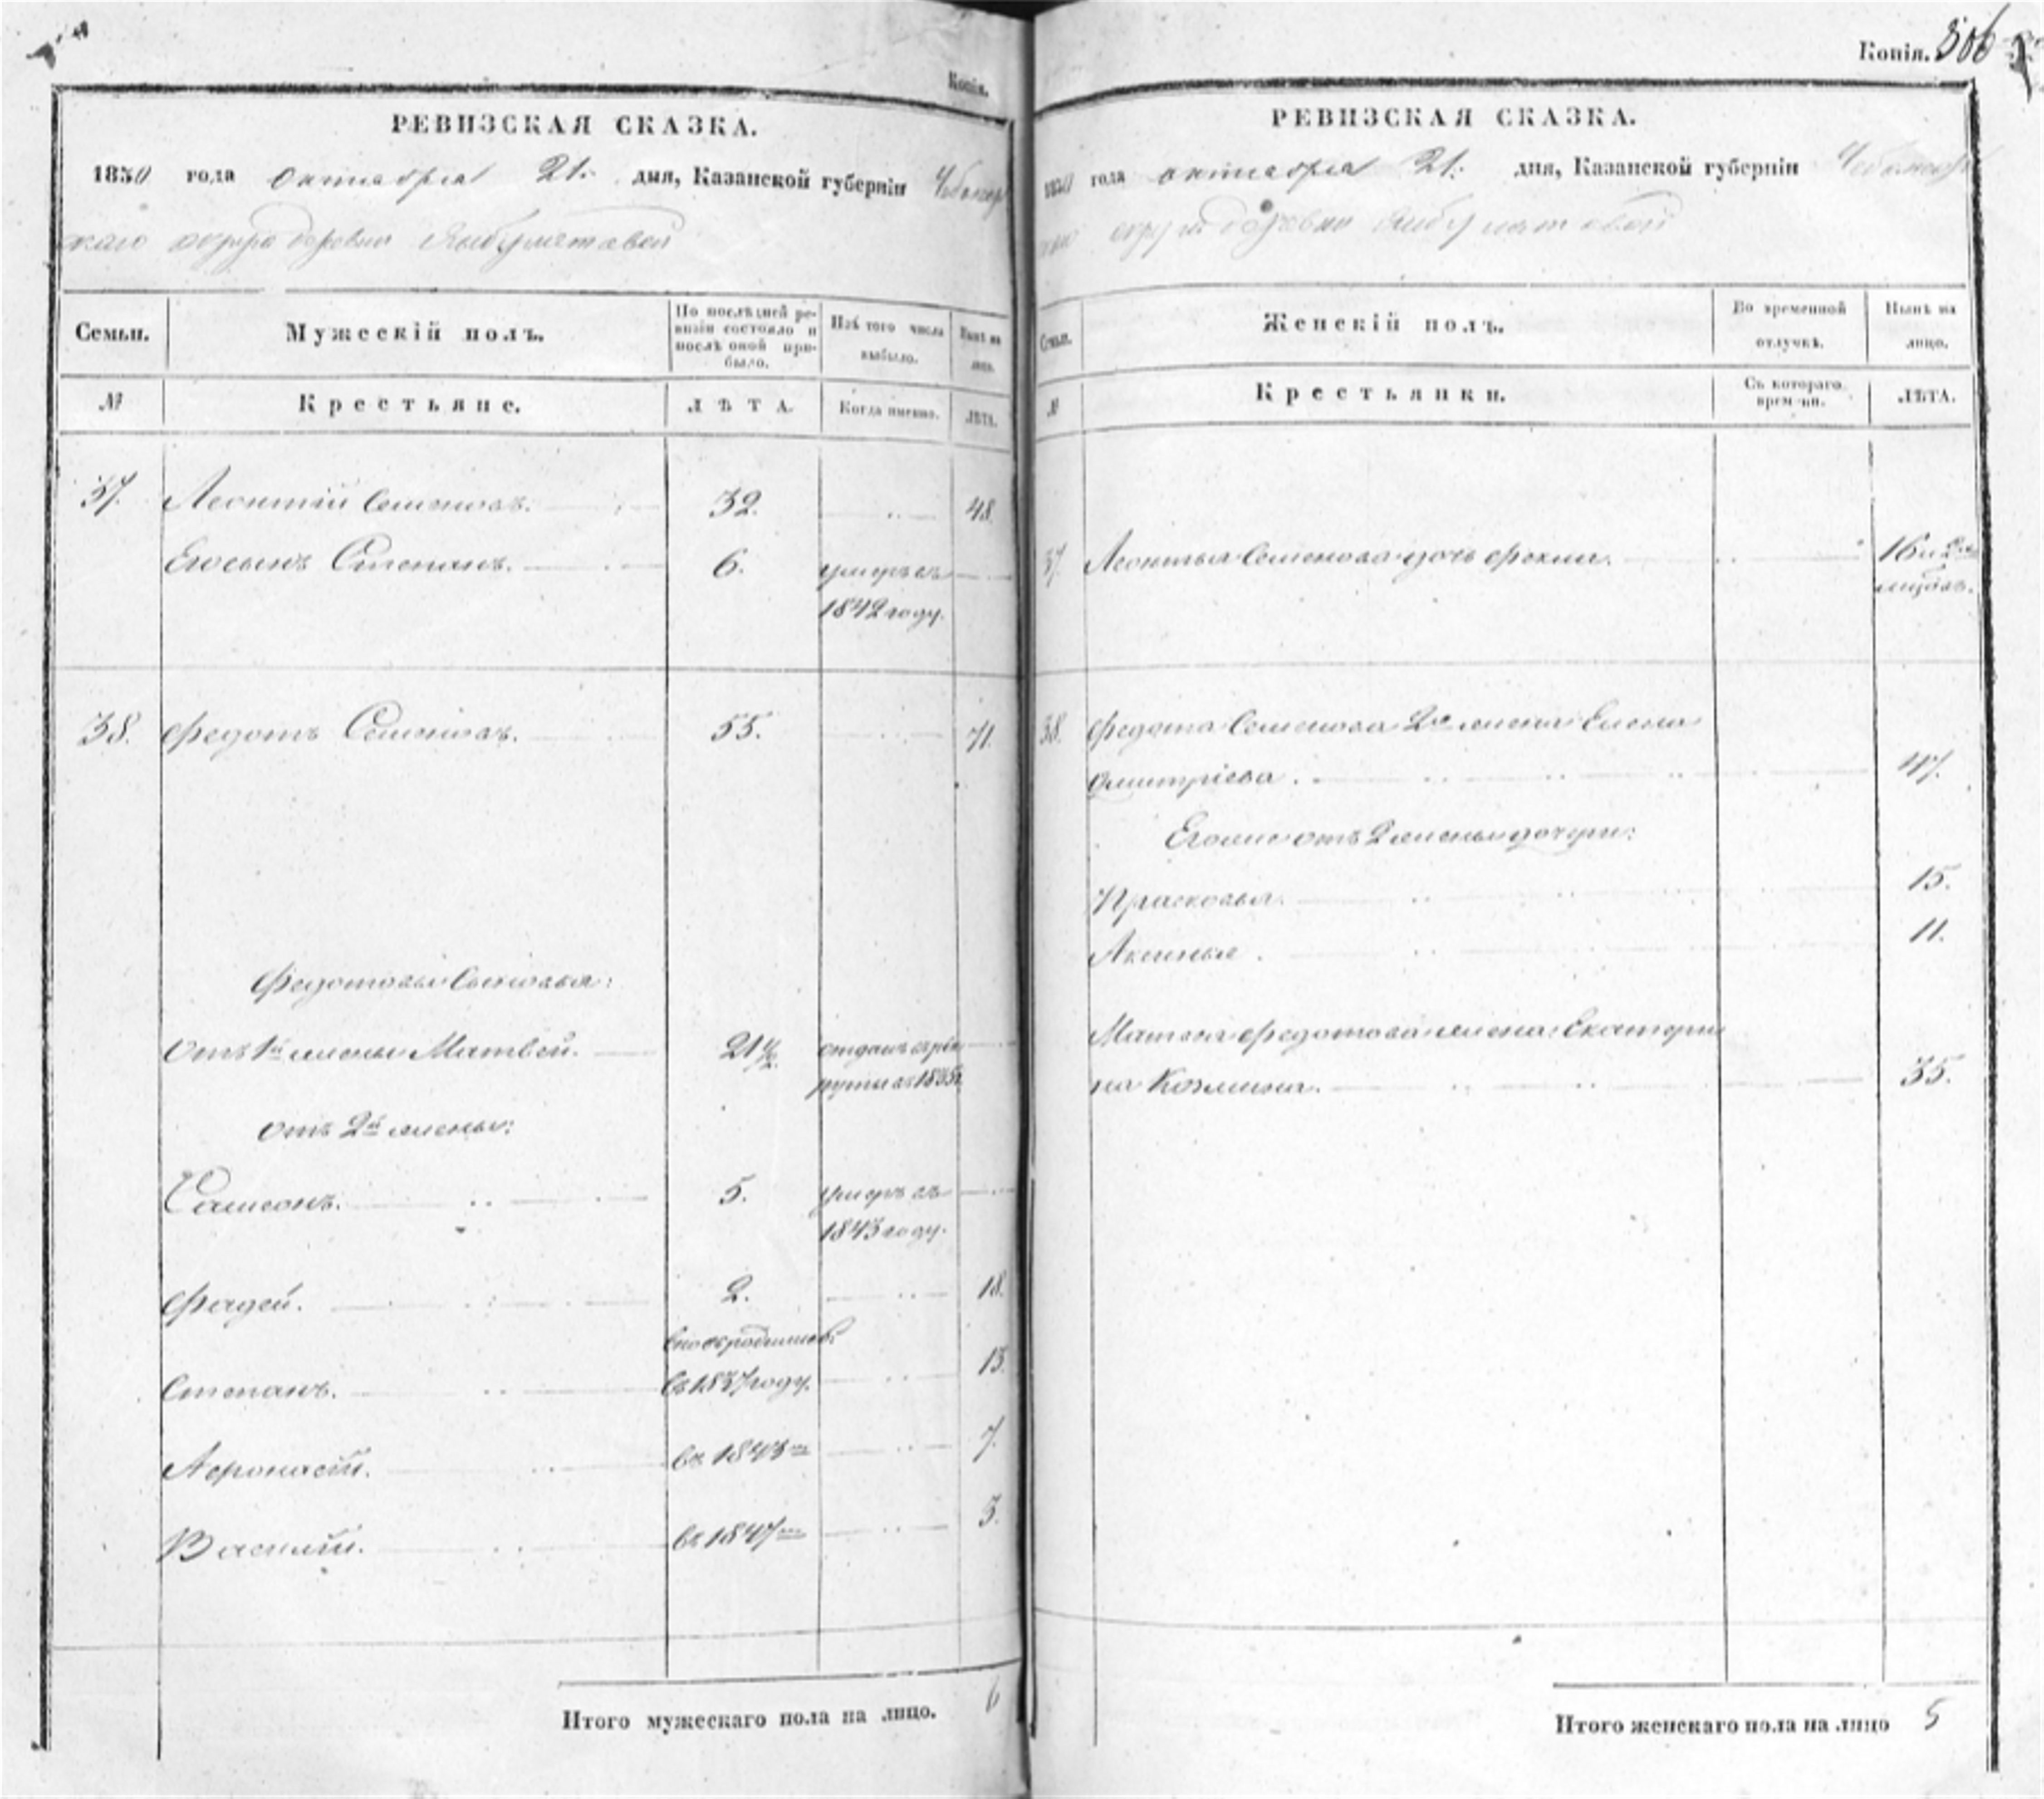 Копія.
РЕВИЗСКАЯ СКАЗКА.
1850 года октября 21. дня, Казанской губерніи Чебоксар
скаго округа деревни Янбулатовой
Семьи.
Мужескій полъ.
По послѣдней ре-
визіи состояло и
послѣ оной при-
было.
Изъ того числа
выбыло.
Нынѣ на
лицо.
№
Крестьяне.
ЛѢТА.
Когда именно.
ЛѢТА.
37. Леонтій Семеновъ. 32. 48.
Его сынъ Степанъ. 6. умеръ въ
1842 году.
38. Федотъ Семеновъ. 55. 71.
Федотовы сыновья:
Отъ 1й жены Матвей. 21 1/2 отданъ въ рек
руты въ 1835
отъ 2й жены:
Самсонъ. 5. умеръ въ
1843 году.
Фадей. 2. 18.
родились:
Степанъ. въ 1837 году. 13.
Афонасій. въ 1843 7.
Василій. въ 1847 3.
Итого мужескаго пола на лицо. 6
Копія. 306
РЕВИЗСКАЯ СКАЗКА.
1850 года октября 21. дня, Казанской губерніи Чебоксар
скаго округа деревни Янбулатовой
Семьи.
Женскій полъ.
Во временной
отлучкѣ.
Нынѣ на
лицо.
№
Крестьянки.
Съ котораго
времени.
ЛѢТА.
37. Леонтья Семенова дочь Фекла. 16 и
38. Федота Семенова 2я жена Елена
Дмитріева. 47.
Его же отъ 2 жены дочери:
Прасковья. 15.
Аксинья. 11.
Матвея Федотова жена Екатери
на Козмина. 35.
Итого женскаго пола на лицо 5